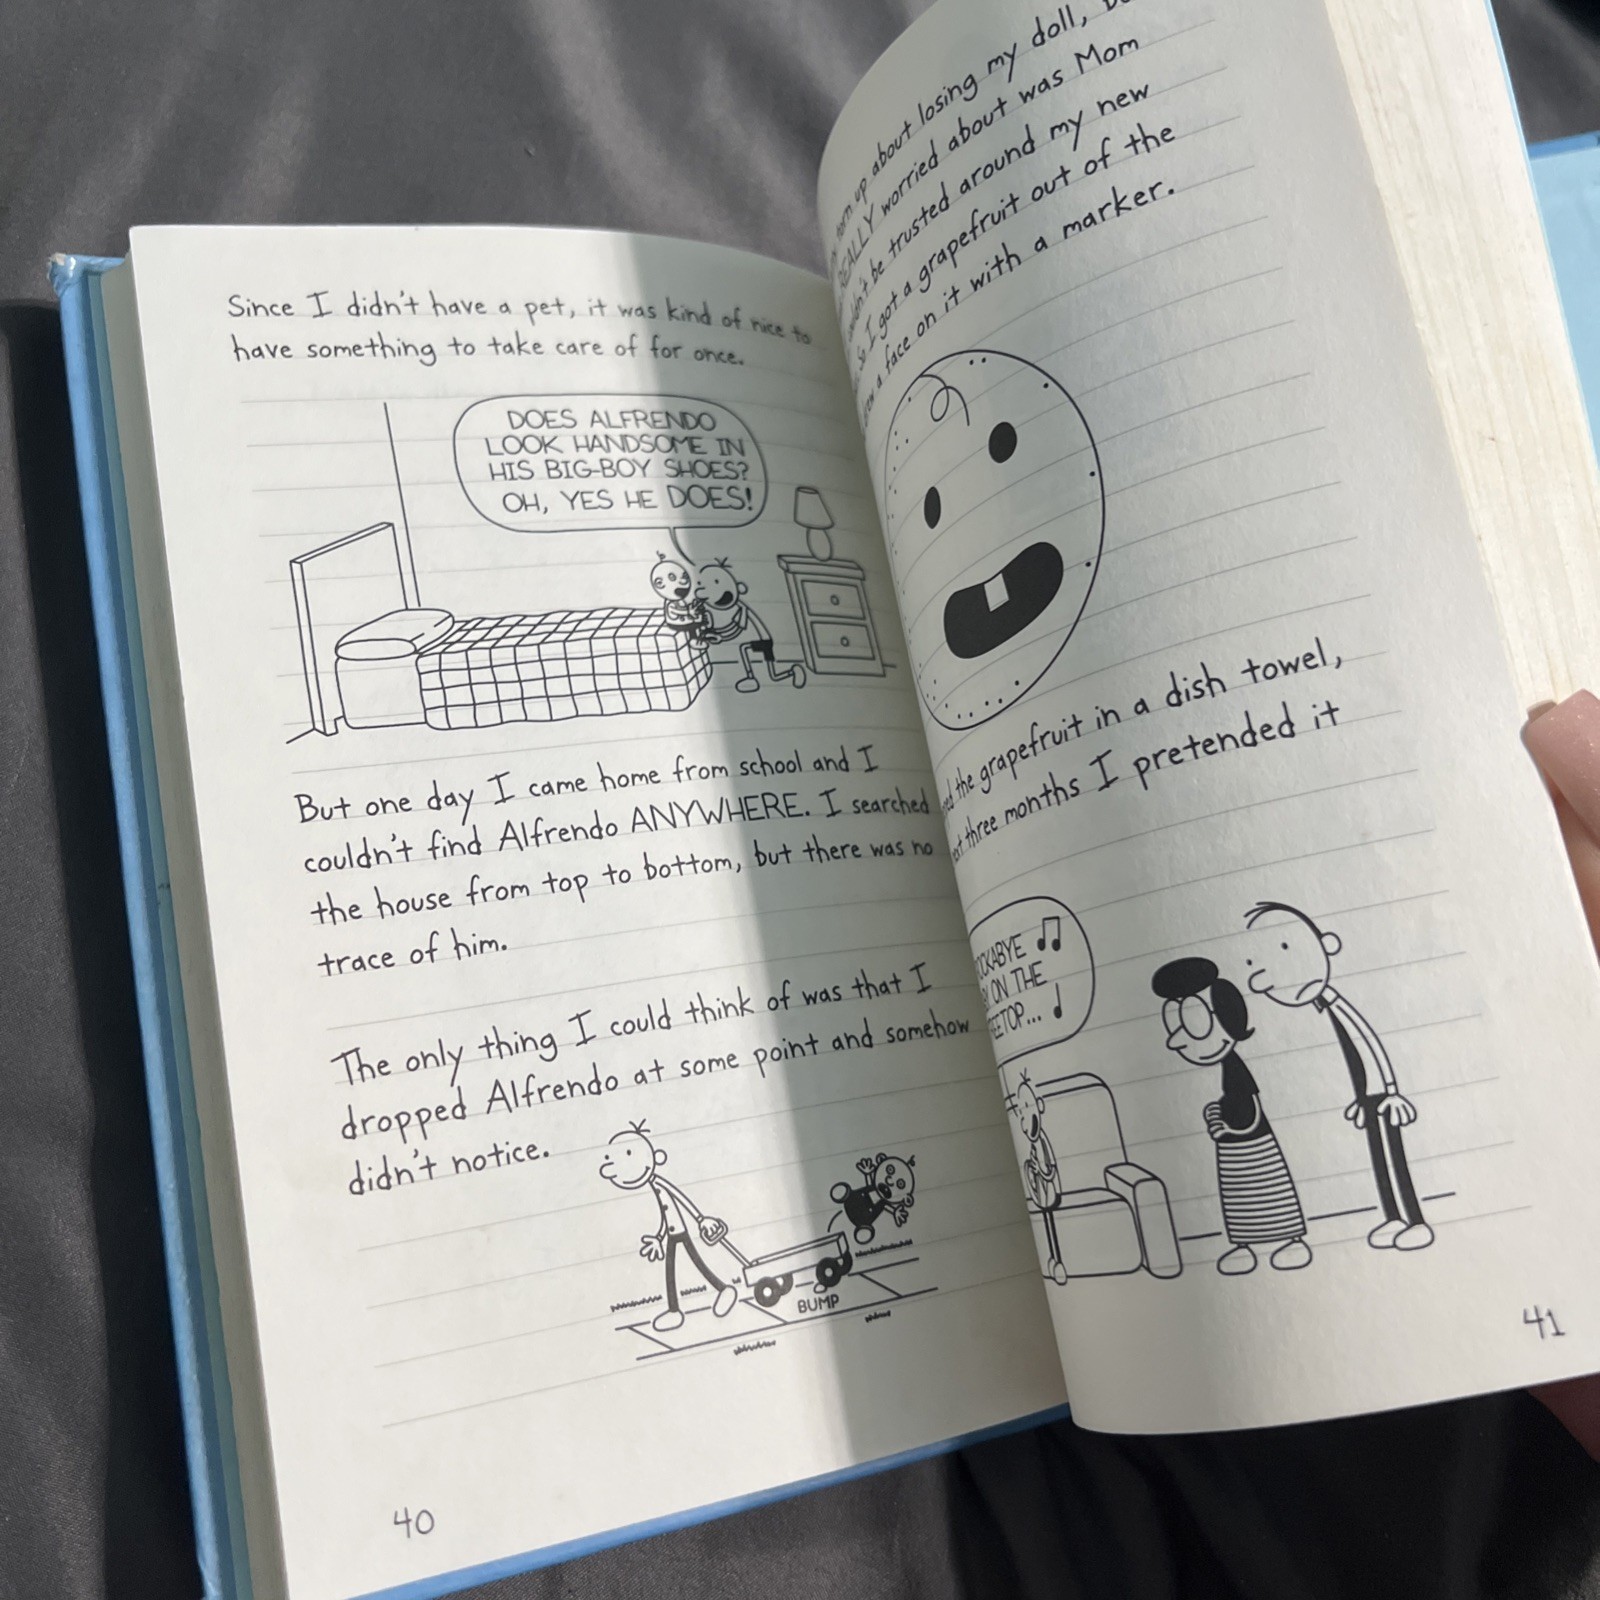 Since I didn't have a pet, it was kind of nice to
have something to take care of for once.
DOES ALFRENDO
LOOK HANDSOME IN
HIS BIG-BOY SHOES?
OH, YES HE DOES!
But one day I came home from school and I
couldn't find Alfrendo ANYWHERE. I searched
the house from top to bottom, but there was no
trace of him.
The only thing I could think of was that I
dropped Alfrendo at some point and somehow
didn't notice.
BUMP
40
up about losing my doll,
REALLY worried about was Mom
be trusted around my new
So I got a grapefruit out of the
a face on it with a marker.
the grapefruit in a dish towel,
three months I pretended it
ON THE
41